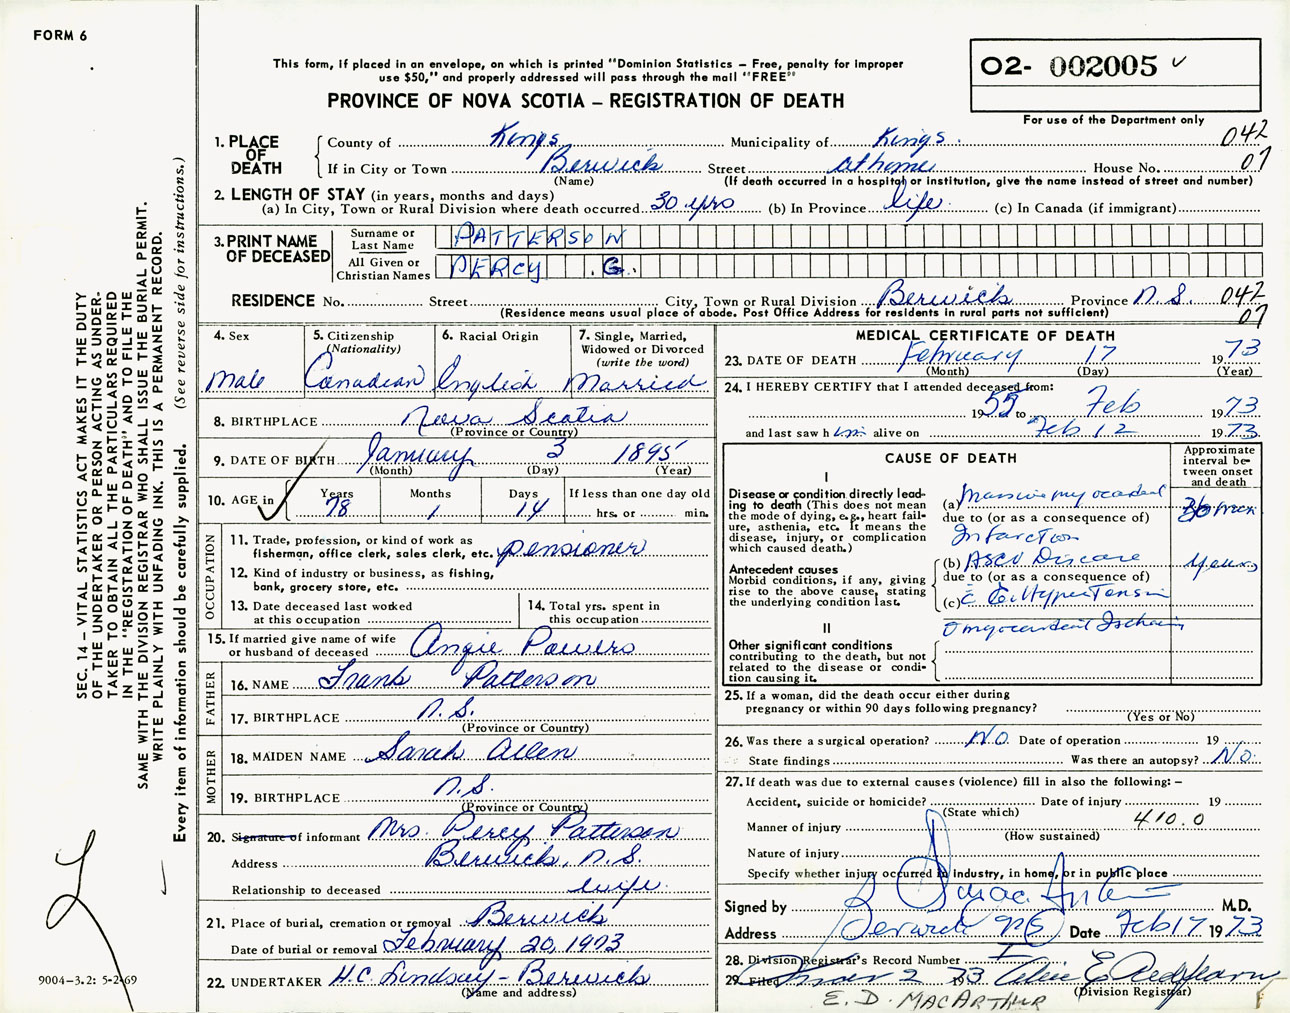 FORM 6
This form, if placed in an envelope, on which is printed "Dominion Statistics – Free, penalty for improper
use $50," and properly addressed will pass through the mail "FREE"
PROVINCE OF NOVA SCOTIA – REGISTRATION OF DEATH
02- 002005
For use of the Department only
042
07
1. PLACE OF DEATH
County of Kings Municipality of Kings
If in City or Town Berwick Street at home House No.
(Name) (If death occurred in a hospital or institution, give the name instead of street and number)
2. LENGTH OF STAY (in years, months and days)
(a) In City, Town or Rural Division where death occurred 30 yrs (b) In Province life (c) In Canada (if immigrant)
3. PRINT NAME OF DECEASED
Surname or Last Name PATTERSON
All Given or Christian Names PERCY G.
RESIDENCE No. Street City, Town or Rural Division Berwick Province N.S. 042
(Residence means usual place of abode. Post Office Address for residents in rural parts not sufficient) 07
4. Sex Male
5. Citizenship (Nationality) Canadian
6. Racial Origin English
7. Single, Married, Widowed or Divorced (write the word) Married
8. BIRTHPLACE Nova Scotia
(Province or Country)
9. DATE OF BIRTH January 3 1895
(Month) (Day) (Year)
10. AGE in Years 78 Months 1 Days 14 If less than one day old hrs. or min.
OCCUPATION
11. Trade, profession, or kind of work as fisherman, office clerk, sales clerk, etc. pensioner
12. Kind of industry or business, as fishing, bank, grocery store, etc.
13. Date deceased last worked at this occupation
14. Total yrs. spent in this occupation
15. If married give name of wife or husband of deceased Angie Powers
FATHER
16. NAME Frank Patterson
17. BIRTHPLACE N.S.
(Province or Country)
MOTHER
18. MAIDEN NAME Sarah Allen
19. BIRTHPLACE N.S.
(Province or Country)
20. Signature of informant Mrs. Percy Patterson
Address Berwick, N.S.
Relationship to deceased wife
21. Place of burial, cremation or removal Berwick
Date of burial or removal February 20, 1973
22. UNDERTAKER H.C. Lindsay – Berwick
(Name and address)
MEDICAL CERTIFICATE OF DEATH
23. DATE OF DEATH February 17 1973
(Month) (Day) (Year)
24. I HEREBY CERTIFY that I attended deceased from:
1955 to Feb 1973
and last saw him alive on Feb 12 1973
CAUSE OF DEATH
Approximate interval between onset and death
I
Disease or condition directly leading to death (This does not mean the mode of dying, e.g., heart failure, asthenia, etc. It means the disease, injury, or complication which caused death.)
(a) Massive myocardial
due to (or as a consequence of)
Infarction
Antecedent causes
Morbid conditions, if any, giving rise to the above cause, stating the underlying condition last.
(b) ASCV Disease years
due to (or as a consequence of)
(c) Hypertension
II
Other significant conditions
contributing to the death, but not related to the disease or condition causing it.
25. If a woman, did the death occur either during pregnancy or within 90 days following pregnancy?
(Yes or No)
26. Was there a surgical operation? No Date of operation 19
State findings Was there an autopsy? No.
27. If death was due to external causes (violence) fill in also the following: –
Accident, suicide or homicide? Date of injury 19
(State which)
Manner of injury 410.0
(How sustained)
Nature of injury
Specify whether injury occurred in industry, in home, or in public place
Signed by M.D.
Address Berwick NS Date Feb 17 1973
28. Division Registrar's Record Number
29. Filed 2 1973
(Division Registrar)
E. D. MACARTHUR
SEC. 14 – VITAL STATISTICS ACT MAKES IT THE DUTY
OF THE UNDERTAKER OR PERSON ACTING AS UNDER-
TAKER TO OBTAIN ALL THE PARTICULARS REQUIRED
IN THE "REGISTRATION OF DEATH" AND TO FILE THE
SAME WITH THE DIVISION REGISTRAR WHO SHALL ISSUE THE BURIAL PERMIT.
WRITE PLAINLY WITH UNFADING INK. THIS IS A PERMANENT RECORD.
Every item of information should be carefully supplied. (See reverse side for instructions.)
9004–3.2: 5-2-69